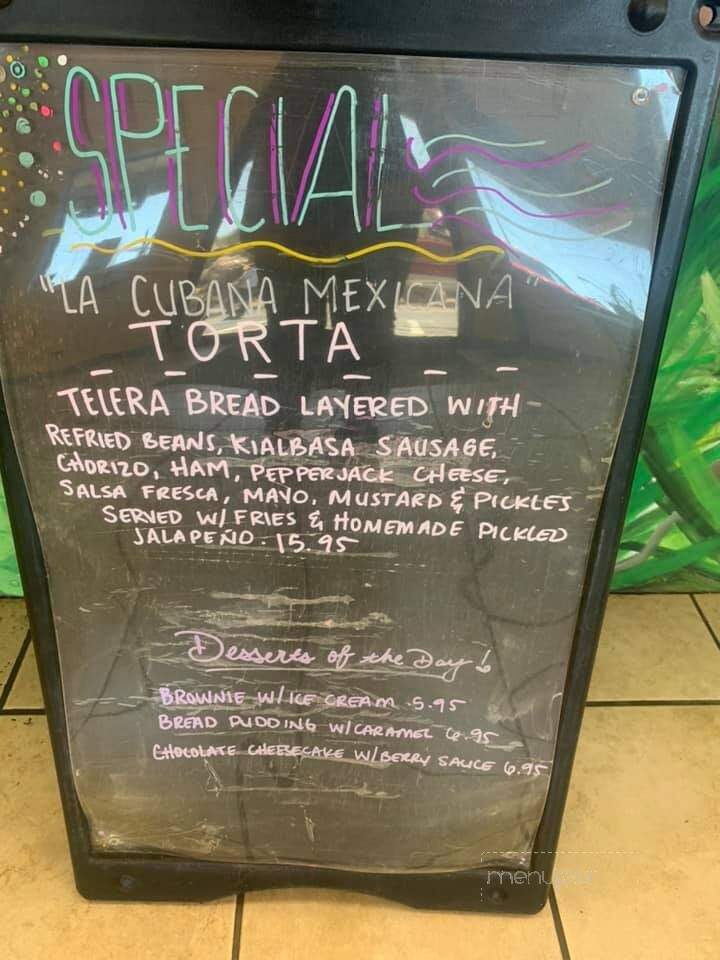 SPECIAL
"LA CUBANA MEXICANA"
TORTA
TELERA BREAD LAYERED WITH
REFRIED BEANS, KIALBASA SAUSAGE,
CHORIZO, HAM, PEPPERJACK CHEESE,
SALSA FRESCA, MAYO, MUSTARD & PICKLES
SERVED W/ FRIES & HOMEMADE PICKLED
JALAPEÑO. 15.95
Desserts of the Day!
BROWNIE W/ ICE CREAM .5.95
BREAD PUDDING W/CARAMEL 6.95
CHOCOLATE CHEESECAKE W/BERRY SAUCE 6.95